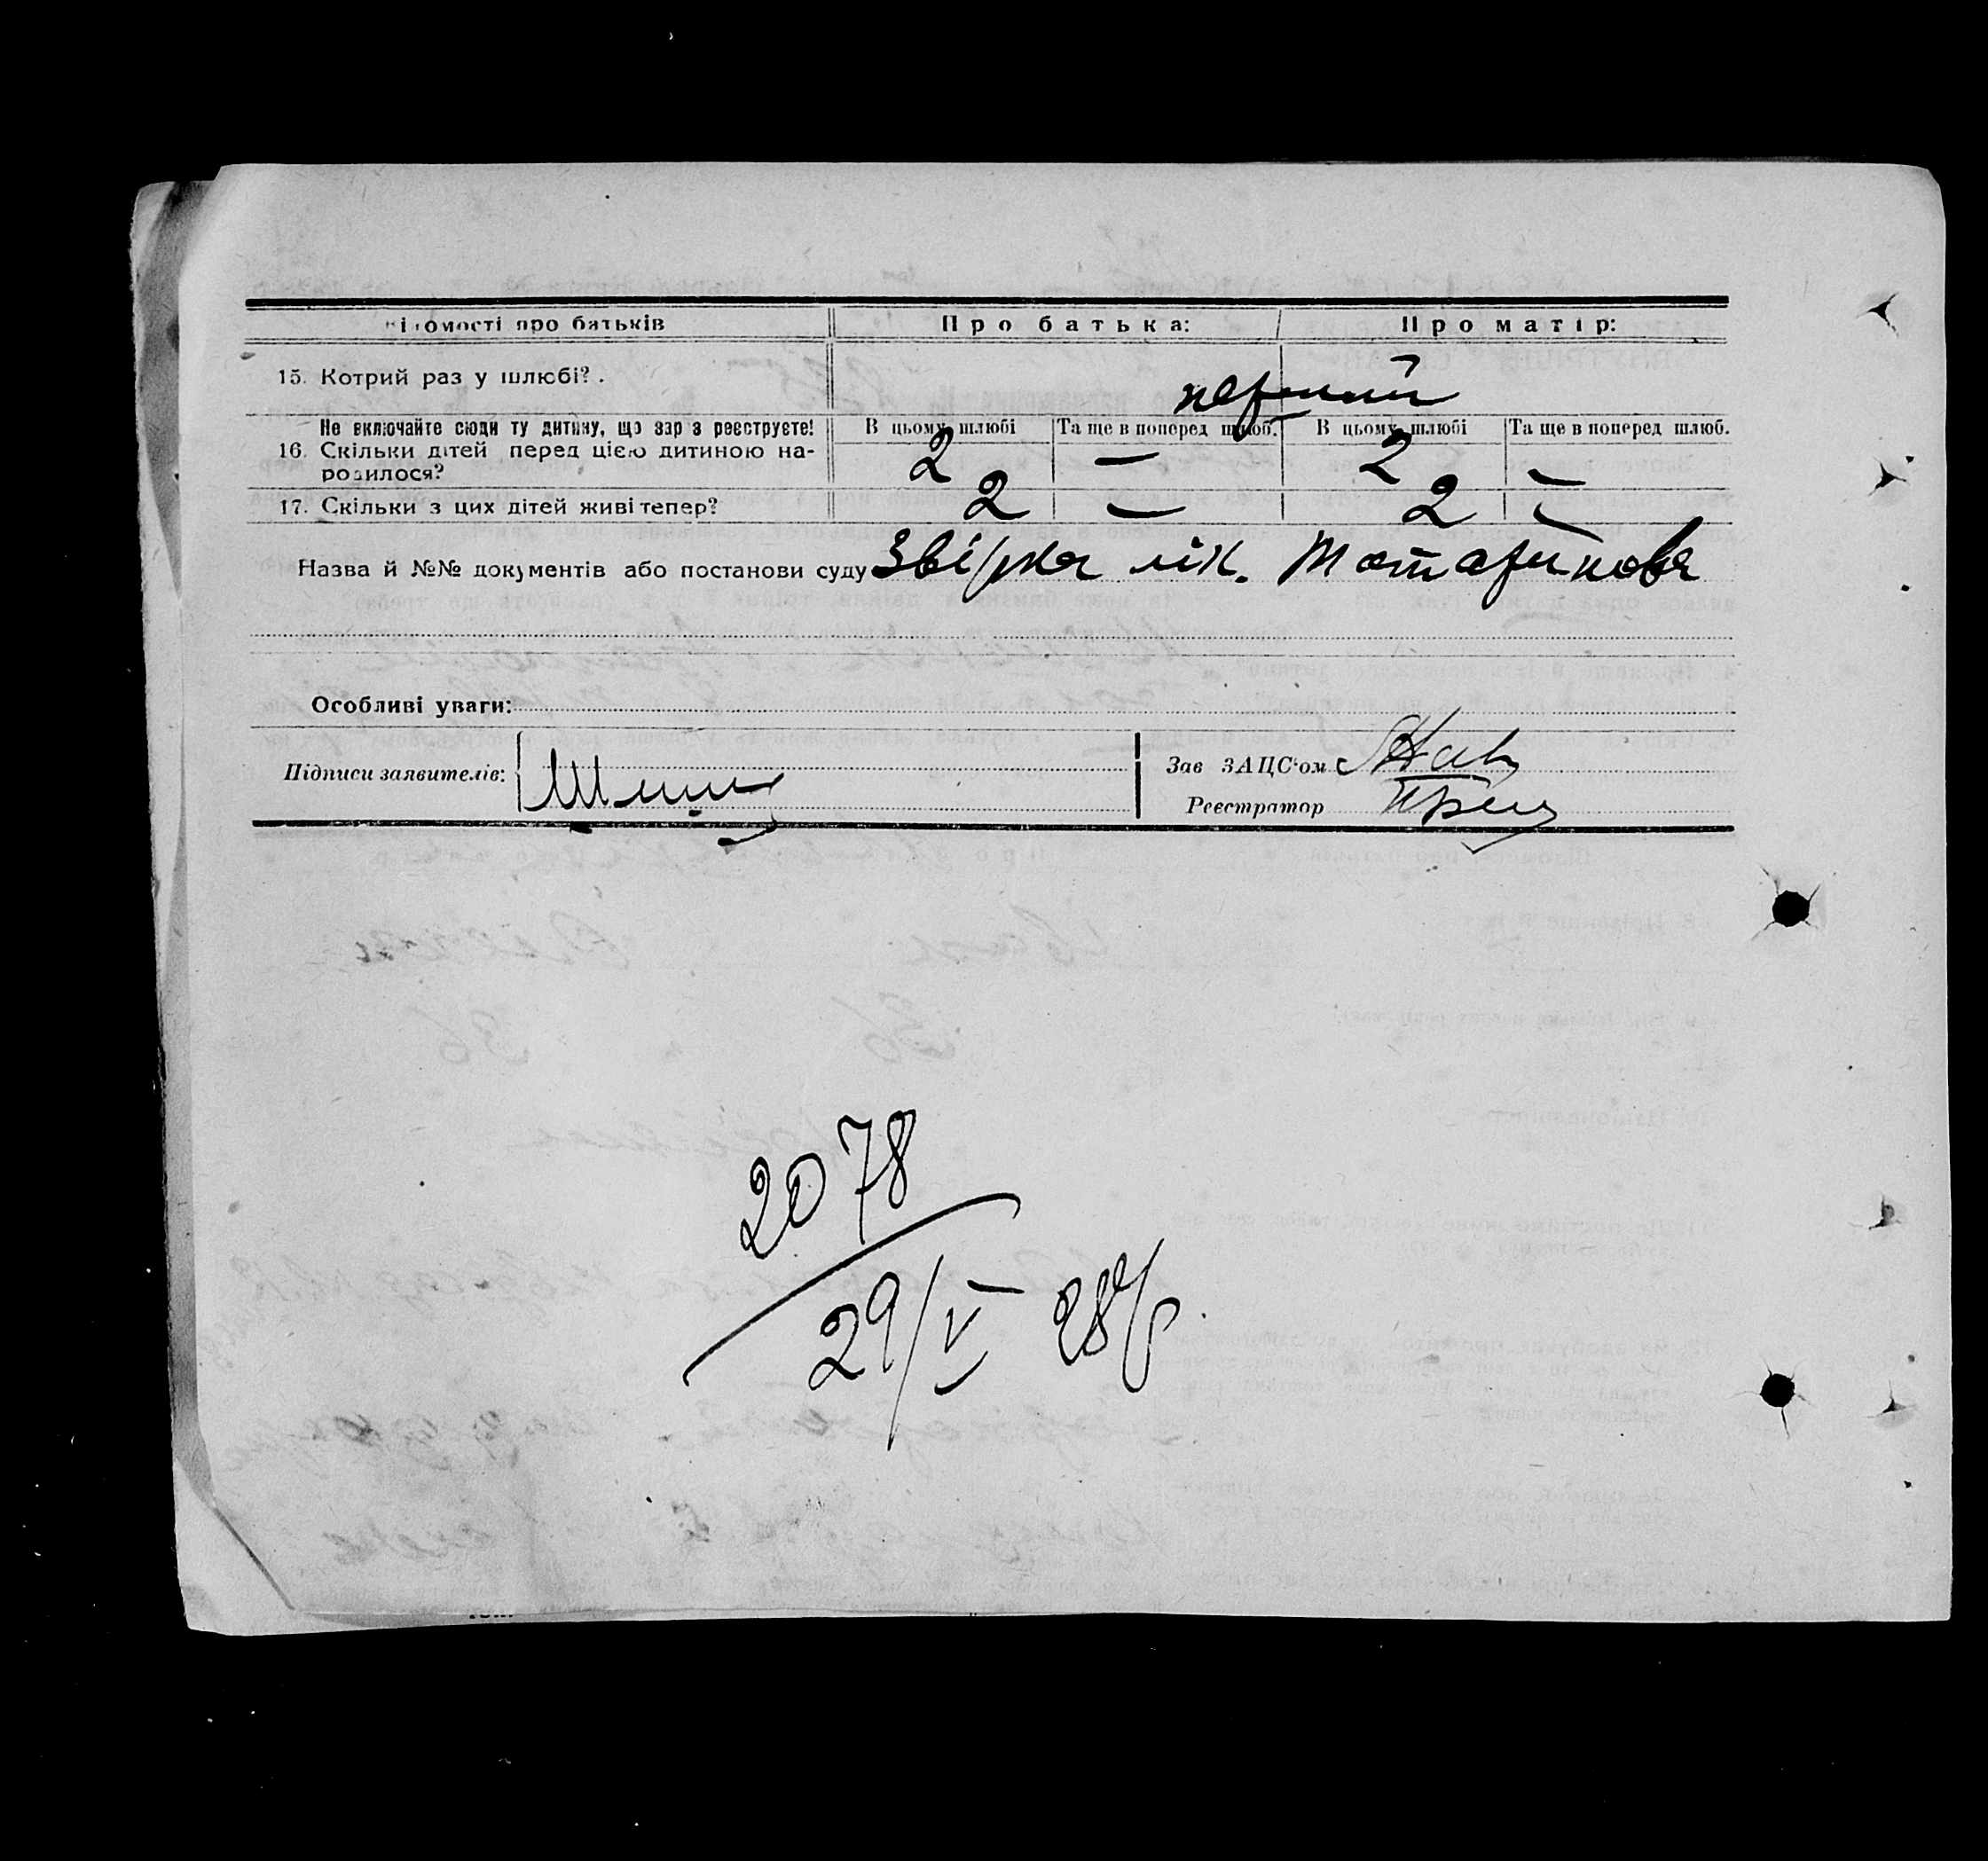 ідомості про батьків Про батька: Про матір:
15. Котрий раз у шлюбі? .
перший
Не включайте сюди ту дитину, що зараз реєструєте! В цьому шлюбі Та ще в поперед шлюб. В цьому шлюбі Та ще в поперед шлюб.
16. Скільки дітей перед цією дитиною на-
родилося? 2 — 2 —
17. Скільки з цих дітей живі тепер? 2 — 2 —
Назва й №№ документів або постанови суду лік.
Особливі уваги:
Підписи заявителів:
Зав ЗАЦС‘ом
Реєстратор
2078
29/V 28 р.